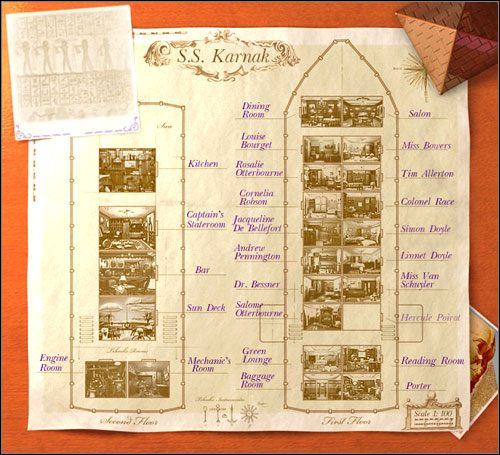 S.S. Karnak
Sun
Kitchen
Captain's
Stateroom
Bar
Sun Deck
Engine
Room
Mechanic's
Room
Second Floor
Dining
Room
Louise
Bourget
Rosalie
Otterbourne
Cornelia
Robson
Jacqueline
De Bellefort
Andrew
Pennington
Dr. Bessner
Salome
Otterbourne
Green
Lounge
Baggage
Room
Salon
Miss Bowers
Tim Allerton
Colonel Race
Simon Doyle
Linnet Doyle
Miss Van
Schuyler
Hercule Poirot
Reading Room
Porter
First Floor
Scale 1: 100